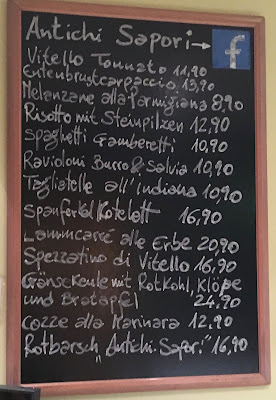 Antichi Sapori → f
Vitello Tonnato 11,90
Entenbrustcarpaccio 13,90
Melanzane alla Parmigiana 8,90
Risotto mit Steinpilzen 12,90
Spaghetti Gamberetti 10,90
Ravioloni Burro & Salvia 10,90
Tagliatelle all'indiana 10,90
Spanferkel Kotelett 16,90
Lammcarré alle Erbe 20,90
Spezzatino di Vitello 16,90
Gänsekeule mit Rotkohl, Klöße
und Bratapfel 24,90
Cozze alla Marinara 12.90
Rotbarsch „Antichi Sapori" 16,90